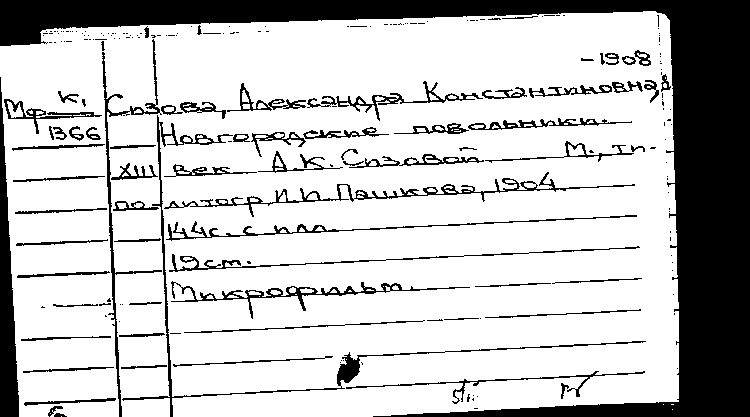 -1908
Мф К1 Сизова, Александра Константиновна,
1366 Новгородские повольники.
XIII век А.К. Сизовой. М., ти-
по-литогр. И.И. Пашкова, 1904.
144с. с илл.
19см.
Микрофильм.